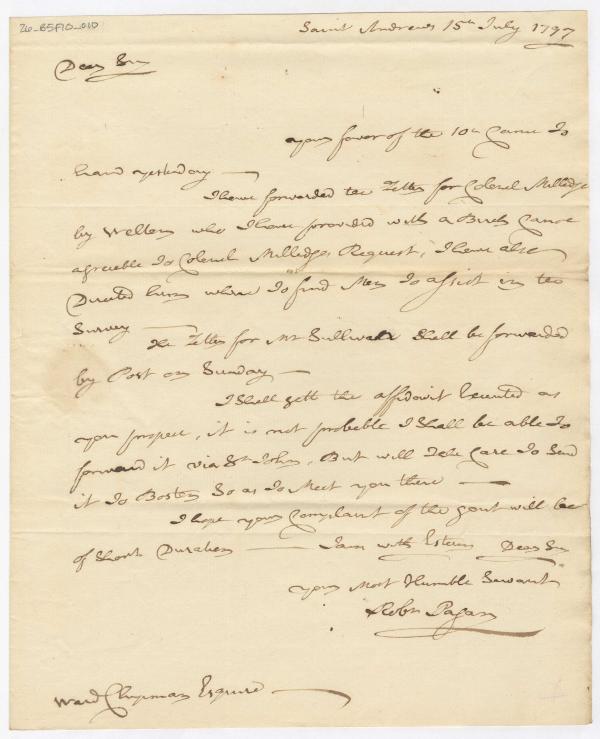 26_B5F10_010
Saint Andrews 15th July 1797
Dear Sir
your favor of the 10th Came to
hand yesterday —
I have forwarded the Letter for Colonel Milledge
by Wellers who I have provided with a Birch Canoe
agreeable to Colonel Milledges Request, I have also
Directed him where to find Men to assist in the
Survey —
The Letter for Mr Sullivan Shall be forwarded
by Post on Sunday —
I Shall gett the affidavit Executed as
you propose, it is not probable I Shall be able to
forward it via St John, But will Take Care to Send
it to Boston So as to Meet you there —
I hope your Complaint of the gout will be
of Short Duration — I am with Esteem Dear Sir
your Most Humble Servant
Robt Pagan
Ward Chipman Esquire —